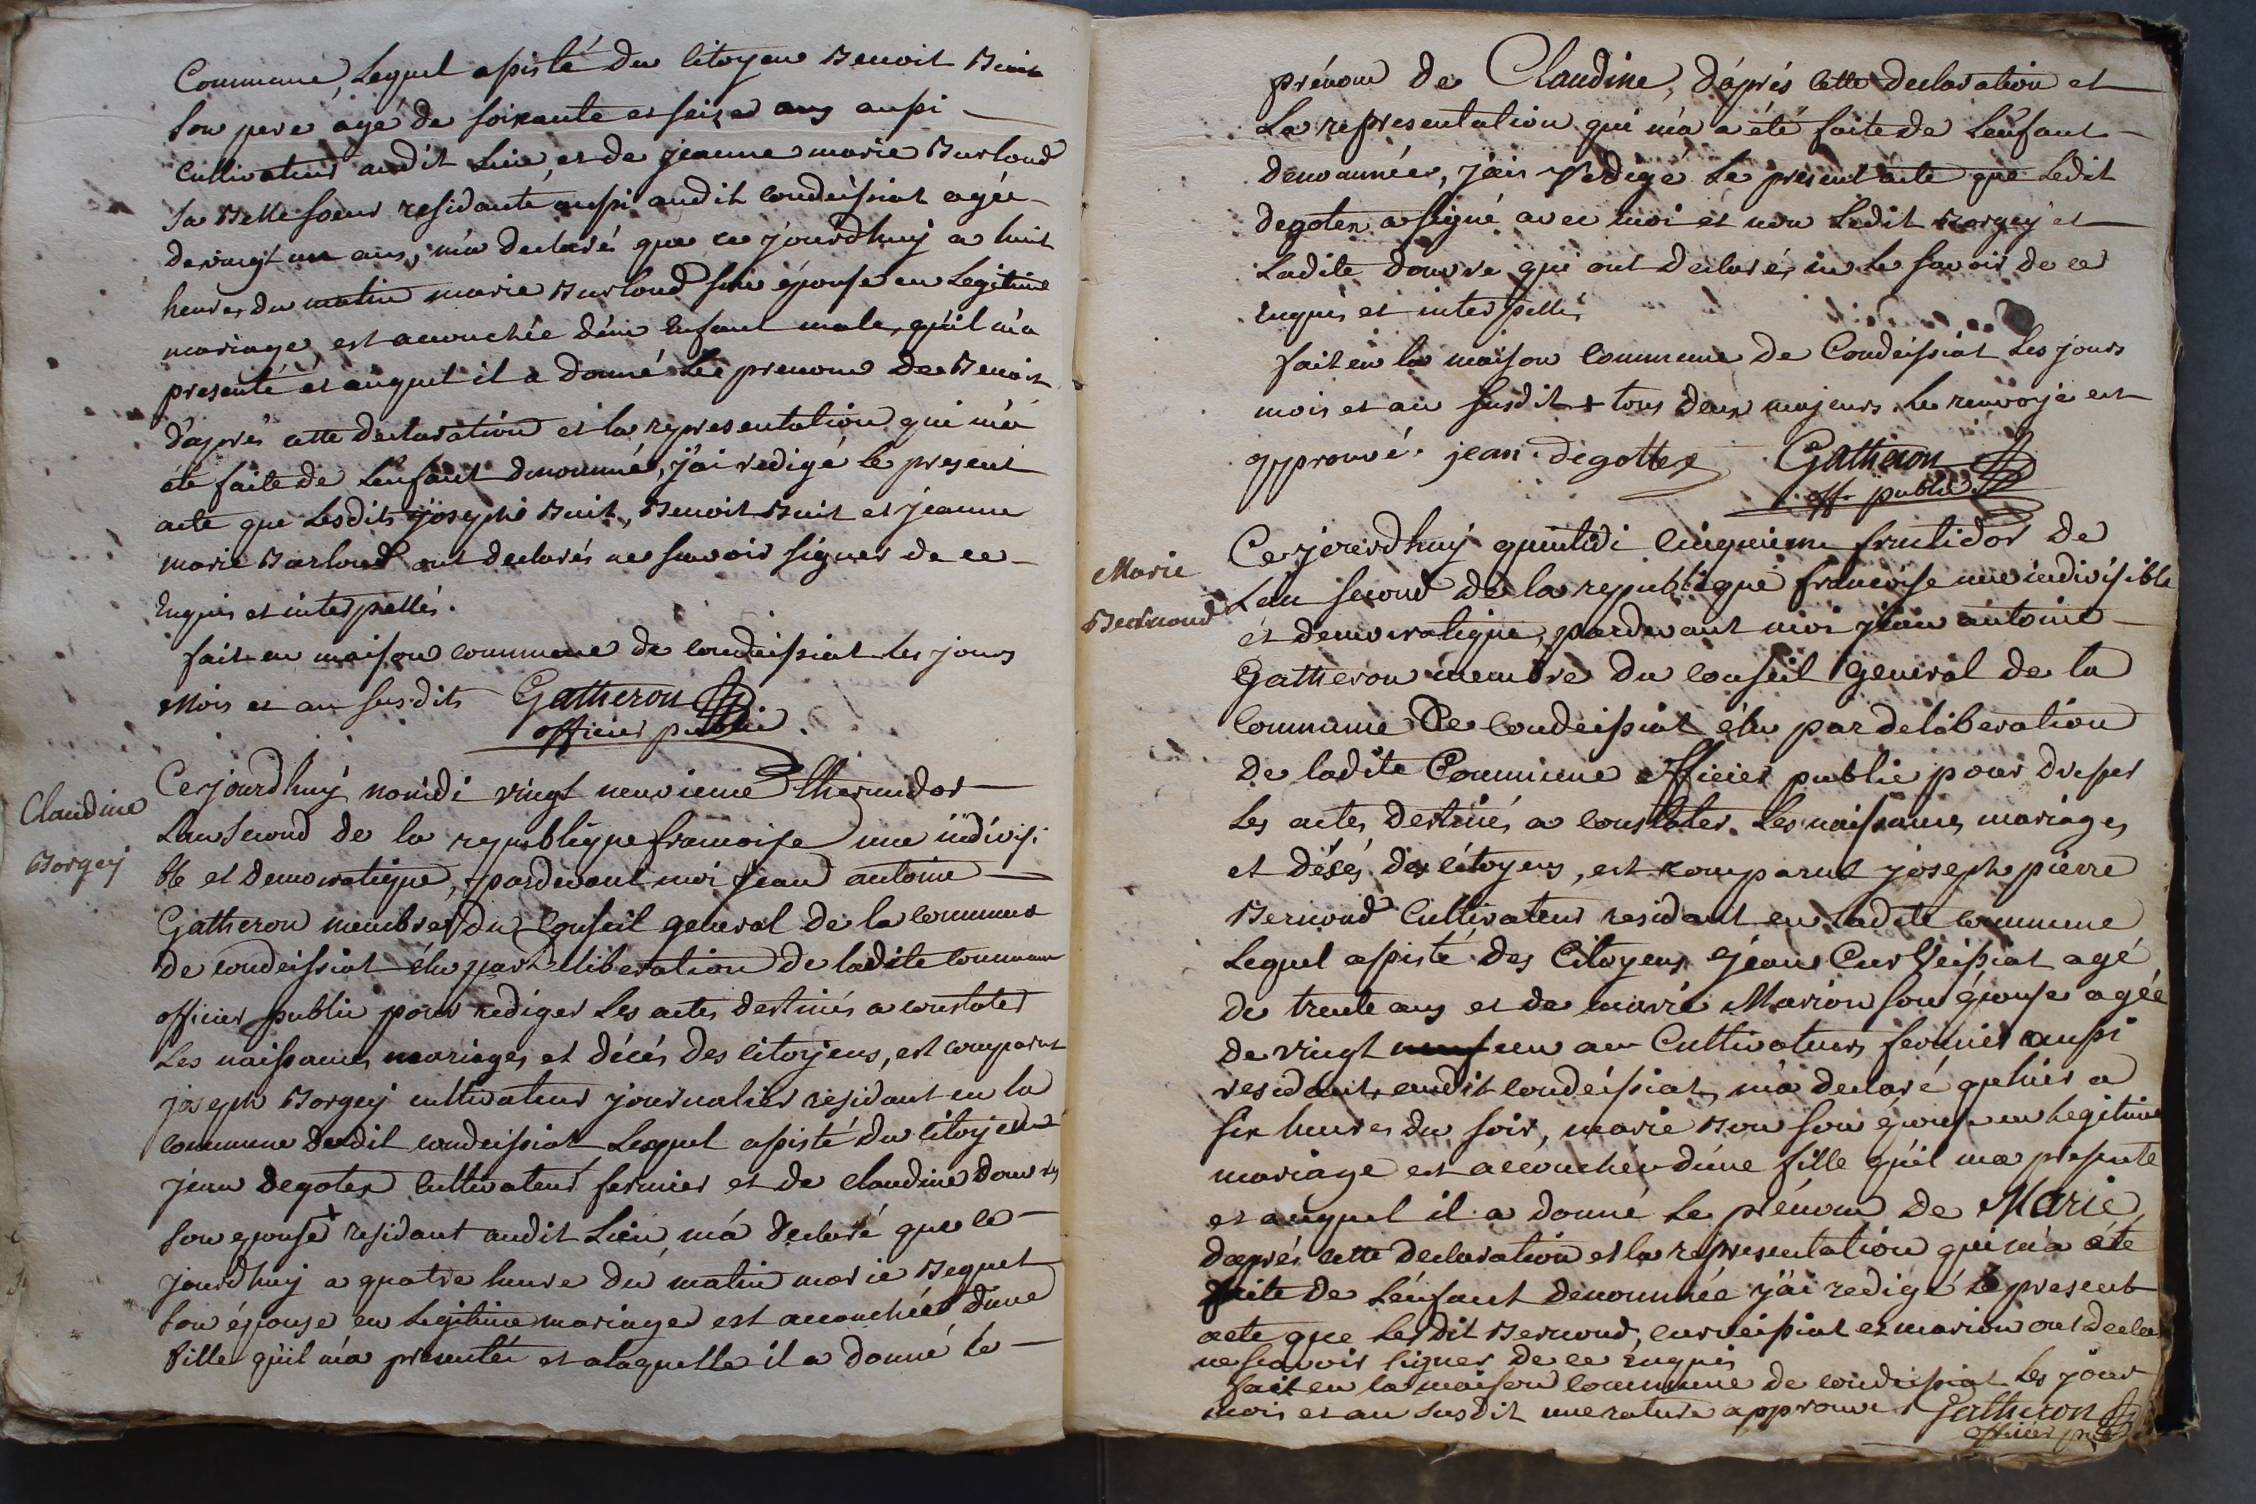 Commune, Lequel assisté du Citoyen Benoit Buit
son pere agé de soixante et seize ans aussi
Cultivateur audit Lieu, et de jeanne marie Burloud
sa Belle soeur residante aussi audit condeissiat agée
de vingt un ans, m'a declaré que ce jourdhuy a huit
heures du matin marie Burloud son épouse en Legitime
mariage, est accouchée d'un Enfant male, qu'il m'a
presenté et auquel il a donné Le prenom de Benoit
d'apres cette declaration et la representation qui m'a
été faite de L'enfant denommé, j'ai redigé le present
acte que Lesdits joseph Buit, Benoit Buit et jeanne
marie Burloud ont declarés ne savoir signer de ce
Enquis et interpellés.
fait en maison commune de condeissiat les jours
Mois et an susdits Gatheron
officier public.
Claudine
Borgey
Cejourdhuy nonidi vingt neuvieme thermidor
L'an Second de la republique francoise une indivisi:
ble et democratique, pardevant moi Jean antoine
Gatheron membre du Conseil general de la commune
de condeissiat élu par deliberation de ladite commune
officier public pour rediger Les actes destinés a constater
Les naissances mariages et décés des citoyens, est comparut
joseph Borgey cultivateur journalier residant en la
commune dudit condeissiat Lequel assisté du citoyen
jean degotex Cultivateur fermier et de claudine
son epouse + residant audit Lieu m'a declaré que ce
jourdhuy a quatre heure du matin marie Bequet
son épouse en Legitime mariage est accouchée d'une
fille qu'il m'a presentée et a laquelle il a donné le
prénom de Claudine, d'après cette declaration et
La representation qui m'a a été faite de L'enfant
denommée, j'ai redigé Le present acte que Ledit
degotex a signé avec moi et non Ledit Borgey et
Ladite qui ont declaré ne Le savoir de ce
Enquis et interpellé,
fait en la maison commune de Condeissiat Les jours
mois et an susdit + tous deux majeurs Le renvoye est
approuvé. jean degottex Gatheron
off. public
Marie
Bernoud
Cejourdhuy quintidi cinquieme fructidor de
L'an second de la republique francoise une indivisible
et democratique, pardevant moi jean antoine
Gatheron membre du conseil general de la
Commune De Condeissiat élu par deliberation
De ladite Commune officier public pour dresser
Les actes destinés a constater Les naissances mariages
et décés des citoyens, est comparut joseph pierre
Bernoud Cultivateur residant en Ladite commune
Lequel assisté des Citoyens jean Curveissiat agé
De trente ans et de marie Marion son épouse agée
De vingt neuf un an Cultivateurs fermier aussi
residants audit condeissiat m'a declaré qu'hier a
six heures du soir, marie Bon son epouse en Legitime
mariage est accouchée d'une fille qu'il ma presente
et auquel il a donné Le prénom De Marie,
d'aprés cette declaration et la representation qui m'a été
faite de L'enfant denommée j'ai redigé Le present
acte que Lesdit Bernoud, curveissiat et marion ont declaré
ne scavoir signer de ce Enquis
fait en la maison Commune de condeissiat Les jour
mois et an susdit une rature approuvé Gatheron
officier